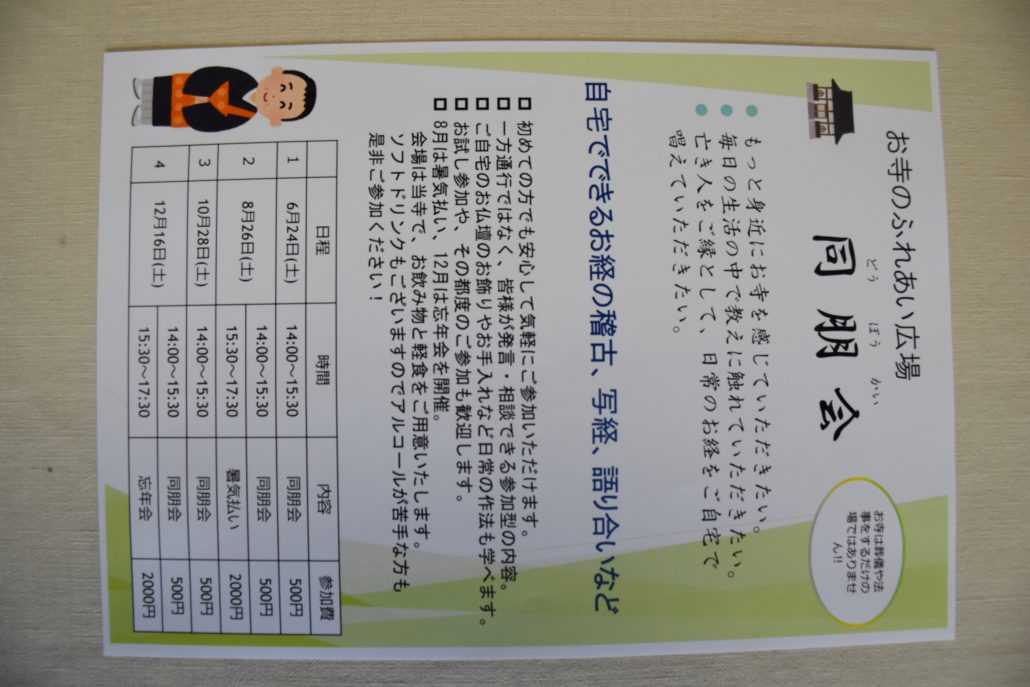 お寺のふれあい広場
どう ぼう かい
同朋会
お寺は葬儀や法
事をするだけの
場ではありませ
ん!!
もっと身近にお寺を感じていただきたい。
毎日の生活の中で教えに触れていただきたい。
亡き人をご縁として、日常のお経をご自宅で
唱えていただきたい。
自宅でできるお経の稽古、写経、語り合いなど
初めての方でも安心して気軽にご参加いただけます。
一方通行ではなく、皆様が発言・相談できる参加型の内容。
ご自宅のお仏壇のお飾りやお手入れなど日常の作法も学べます。
お試し参加や、その都度のご参加も歓迎します。
8月は暑気払い、12月は忘年会を開催。
会場は当寺で、お飲み物と軽食をご用意いたします。
ソフトドリンクもございますのでアルコールが苦手な方も
是非ご参加ください！
日程 時間 内容 参加費
1 6月24日(土) 14:00～15:30 同朋会 500円
2 8月26日(土) 14:00～15:30 同朋会 500円
15:30～17:30 暑気払い 2000円
3 10月28日(土) 14:00～15:30 同朋会 500円
4 12月16日(土) 14:00～15:30 同朋会 500円
15:30～17:30 忘年会 2000円